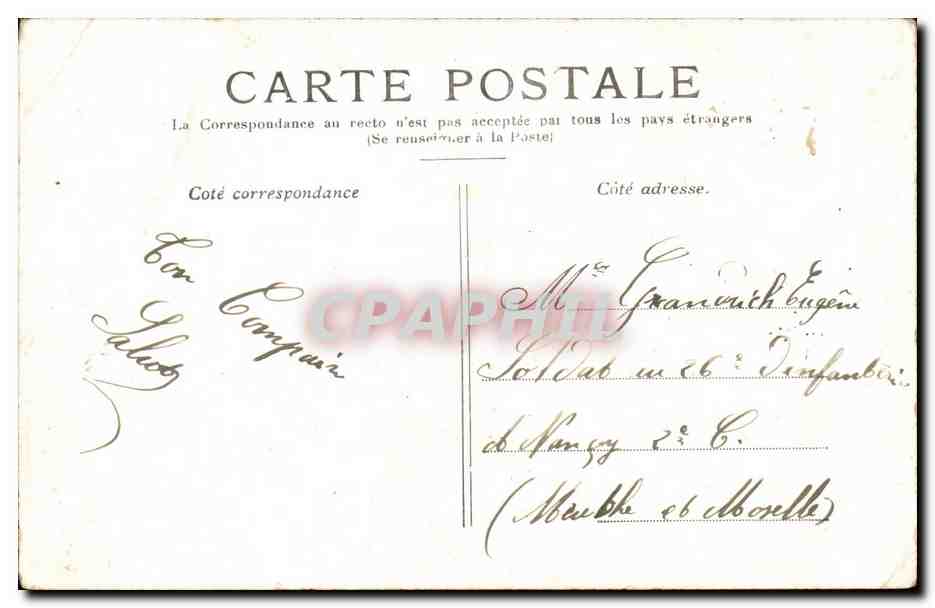 CARTE POSTALE
La Correspondance au recto n'est pas acceptée par tous les pays étrangers
(Se renseigner à la Poste)
Coté correspondance
Côté adresse.
Ton Compain
CPAPHIL
Mr Granovich Eugène
Soldat au 26e d'infanterie
à Nancy 2e C.
(Meurthe et Moselle)